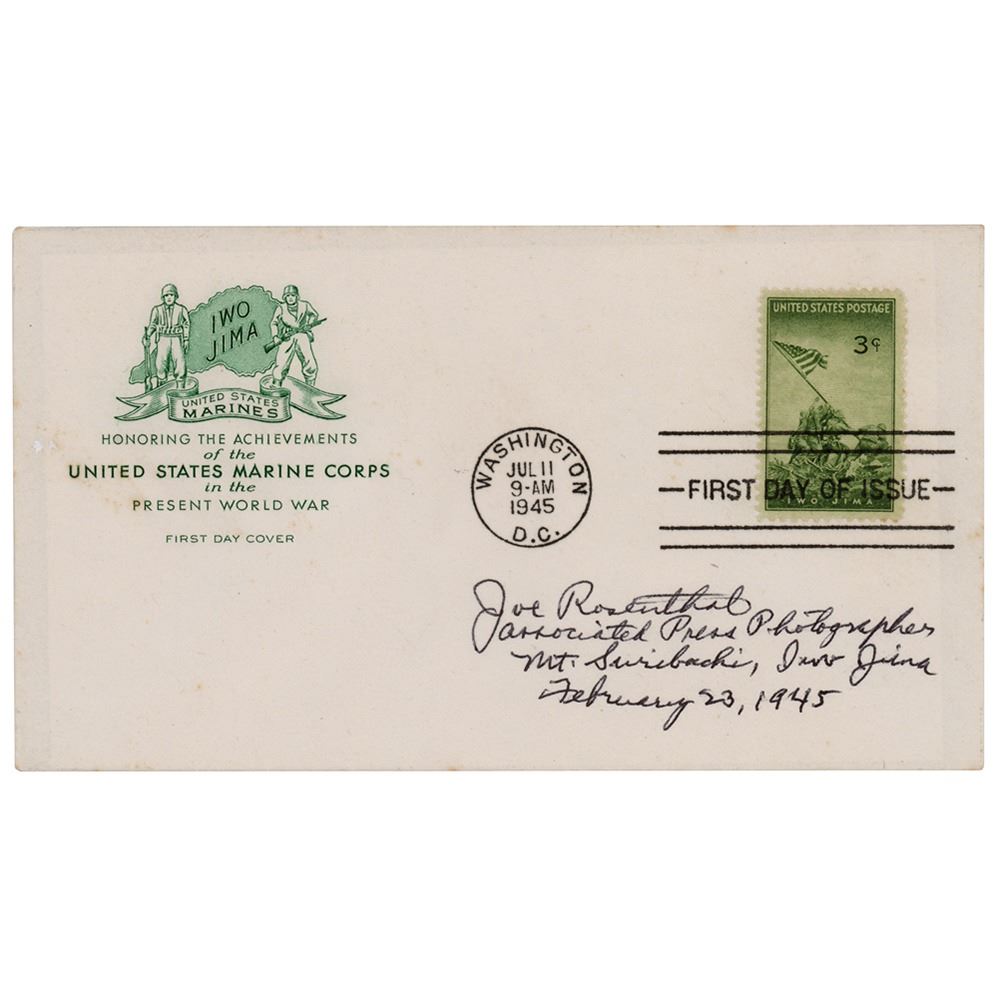 IWO
JIMA
UNITED STATES
MARINES
HONORING THE ACHIEVEMENTS
of the
UNITED STATES MARINE CORPS
in the
PRESENT WORLD WAR
FIRST DAY COVER
WASHINGTON
JUL 11
9-AM
1945
D.C.
UNITED STATES POSTAGE
3¢
FIRST DAY OF ISSUE
IWO JIMA
Joe Rosenthal
Associated Press Photographer
Mt. Suribachi, Iwo Jima
February 23, 1945